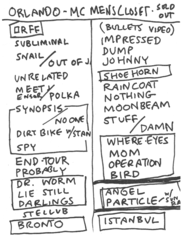 ORLANDO - MC MENSCLOSET - SOLD OUT
ORFF
SUBLIMINAL
SNAIL / OUT OF J.
UNRELATED
MEET / POLKA
ENSLER
SYNOPSIS / NO ONE
DIRT BIKE W/STAN
SPY
END TOUR
PROBABLY
DR. WORM
LIE STILL
DARLINGS
STELLUB
BRONTO
(BULLETS VIDEO)
IMPRESSED
DUMP
JOHNNY
SHOEHORN
RAINCOAT
NOTHING
MOONBEAM
STUFF / DAMN
WHERE EYES
MOM
OPERATION
BIRD
ANGEL
PARTICLE W/
ISTANBUL